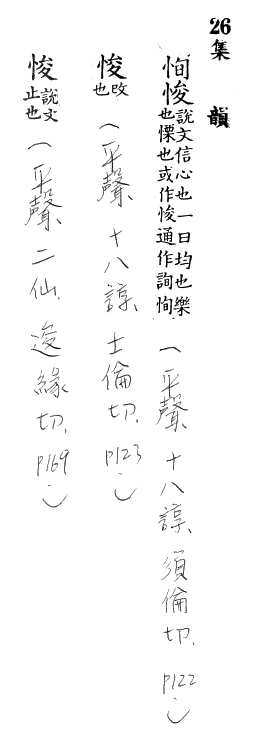 26集 韻
恂悛說文信心也一曰均也樂也慄也或作悛通作詢恂(平聲十八諄、須倫切、P122)
悛改也(平聲十八諄、士倫切、P123)
悛說文止也(平聲二仙、逡緣切、P169)